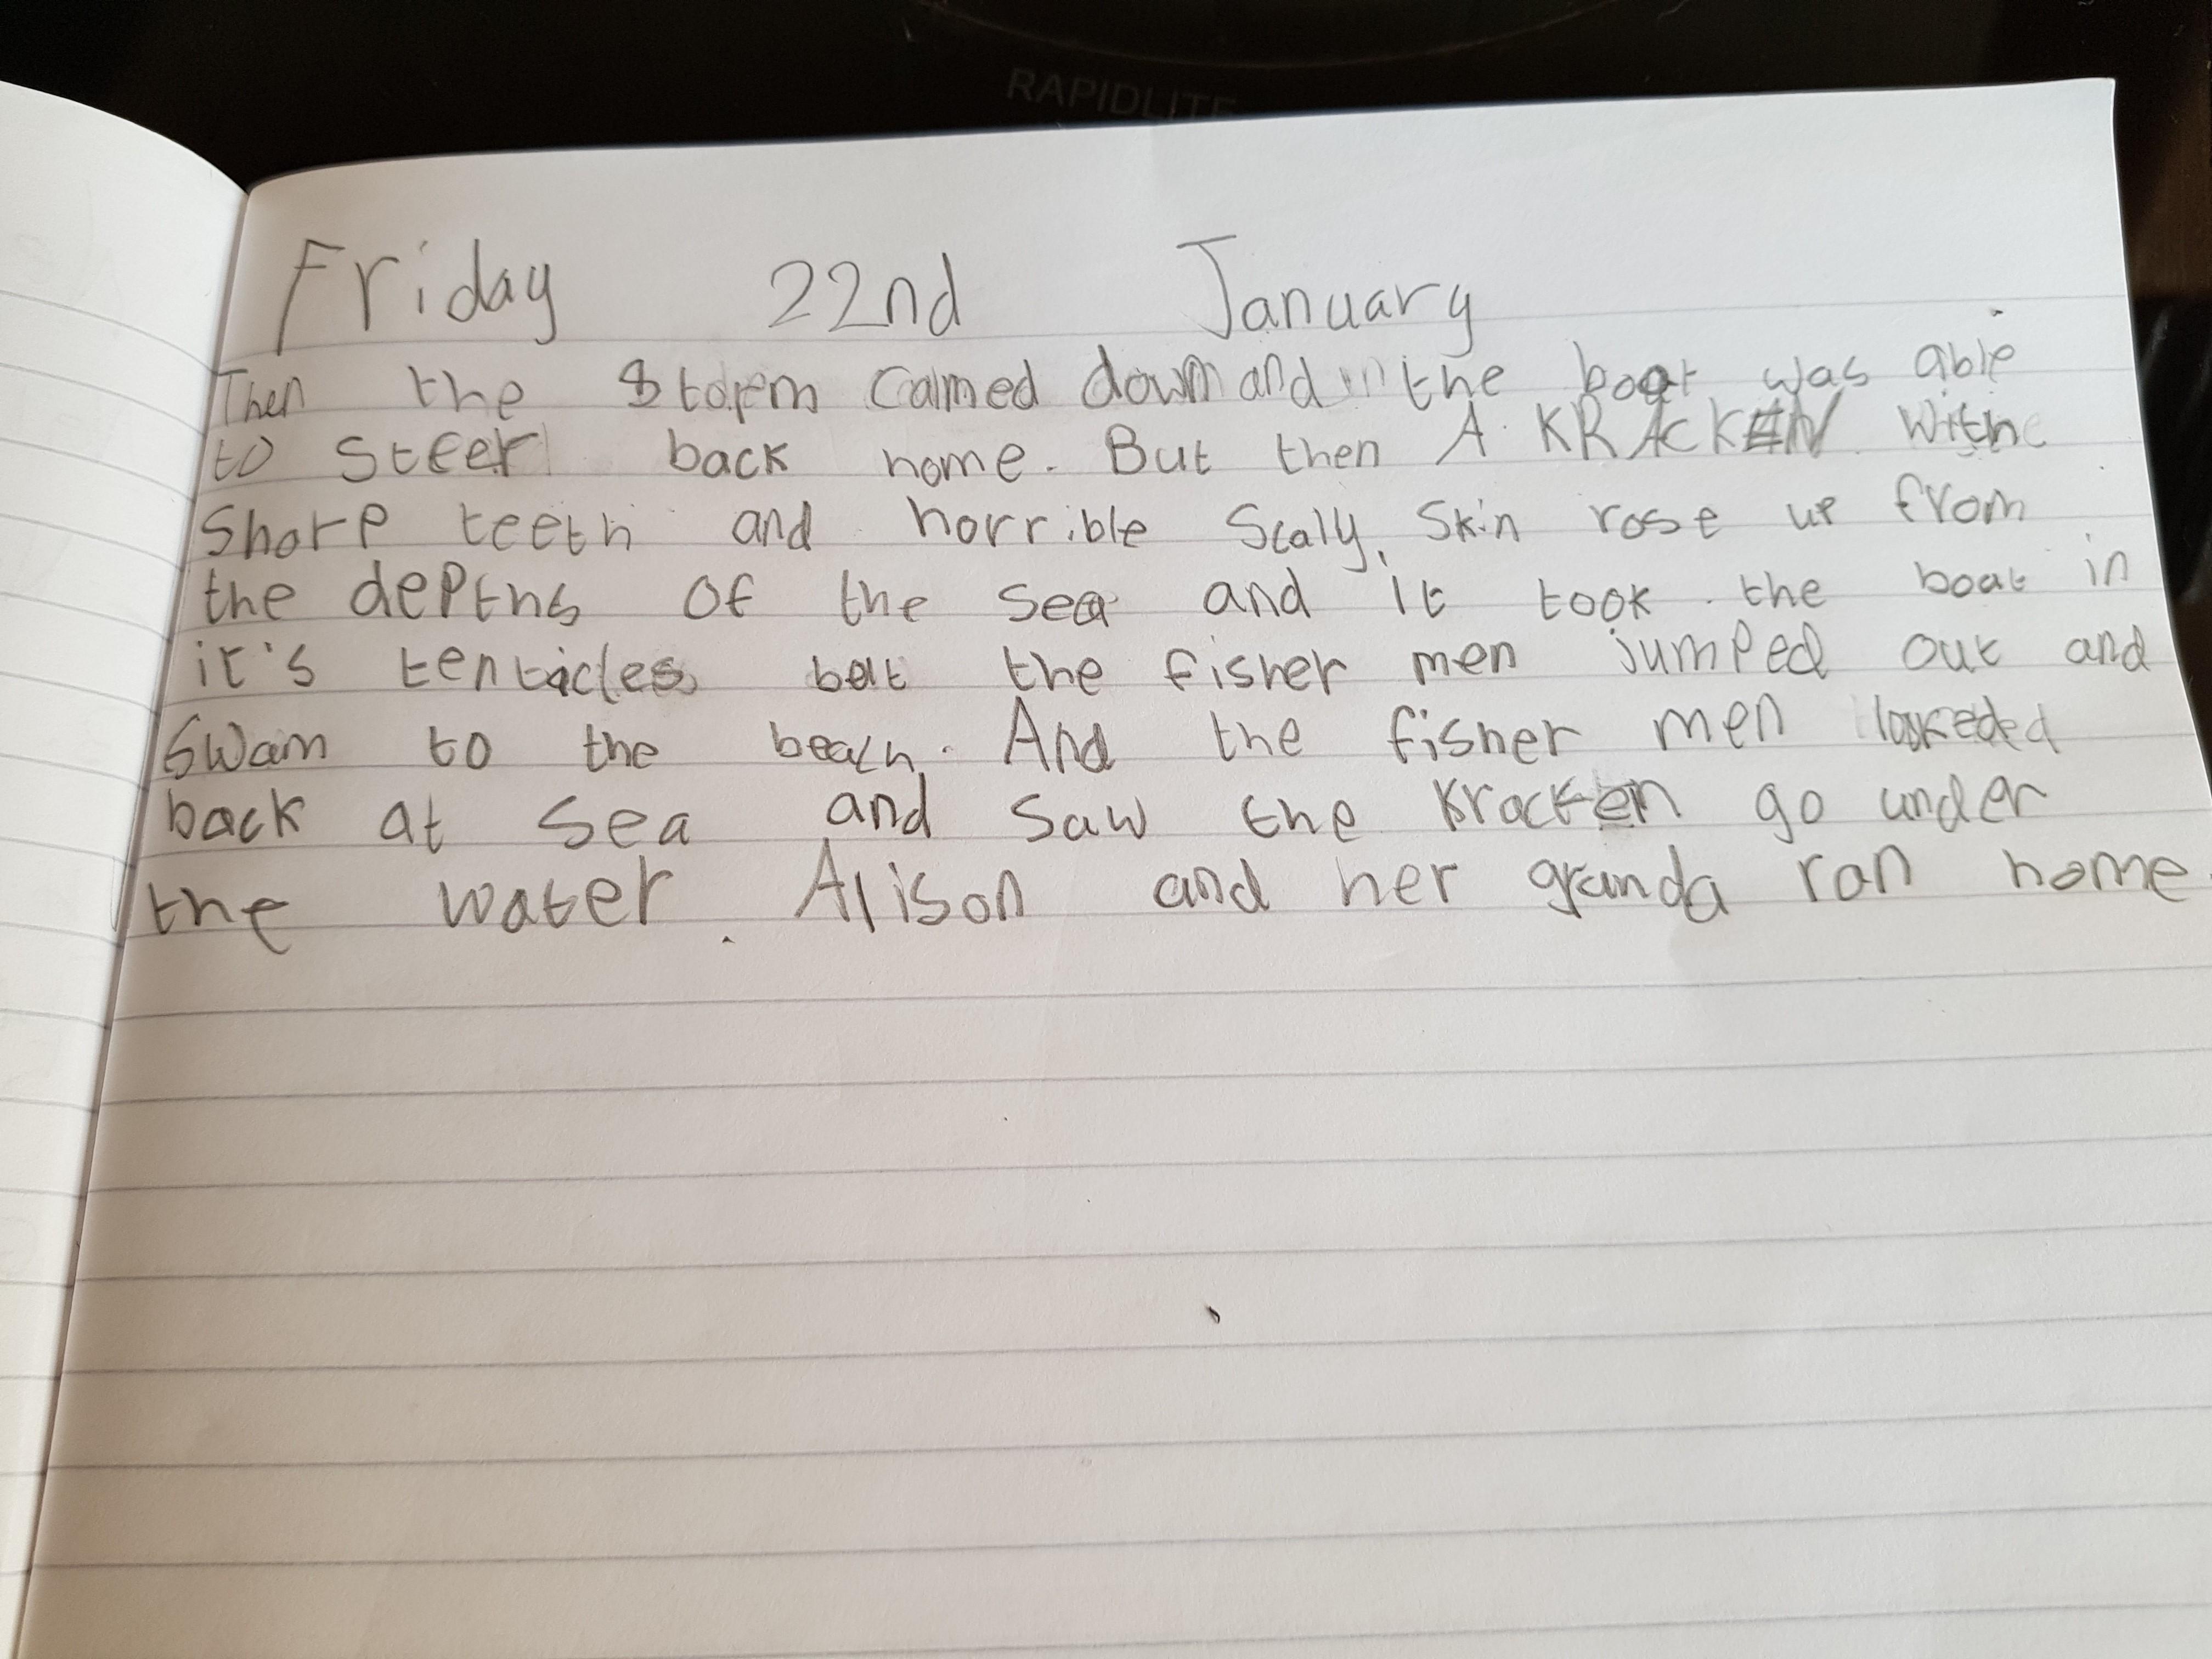 RAPIDLITE
Friday 22nd January
Then the Storm Calmed down and the boat was able
to steer back home. But then A KRACKEN with
Sharp teeth and horrible Scaly, Skin rose up from
the depths of the sea and it took the boat in
it's tenticles but the fisher men jumped out and
Swam to the beach. And the fisher men looked
back at sea and saw the kracken go under
the water. Alison and her granda ran home.